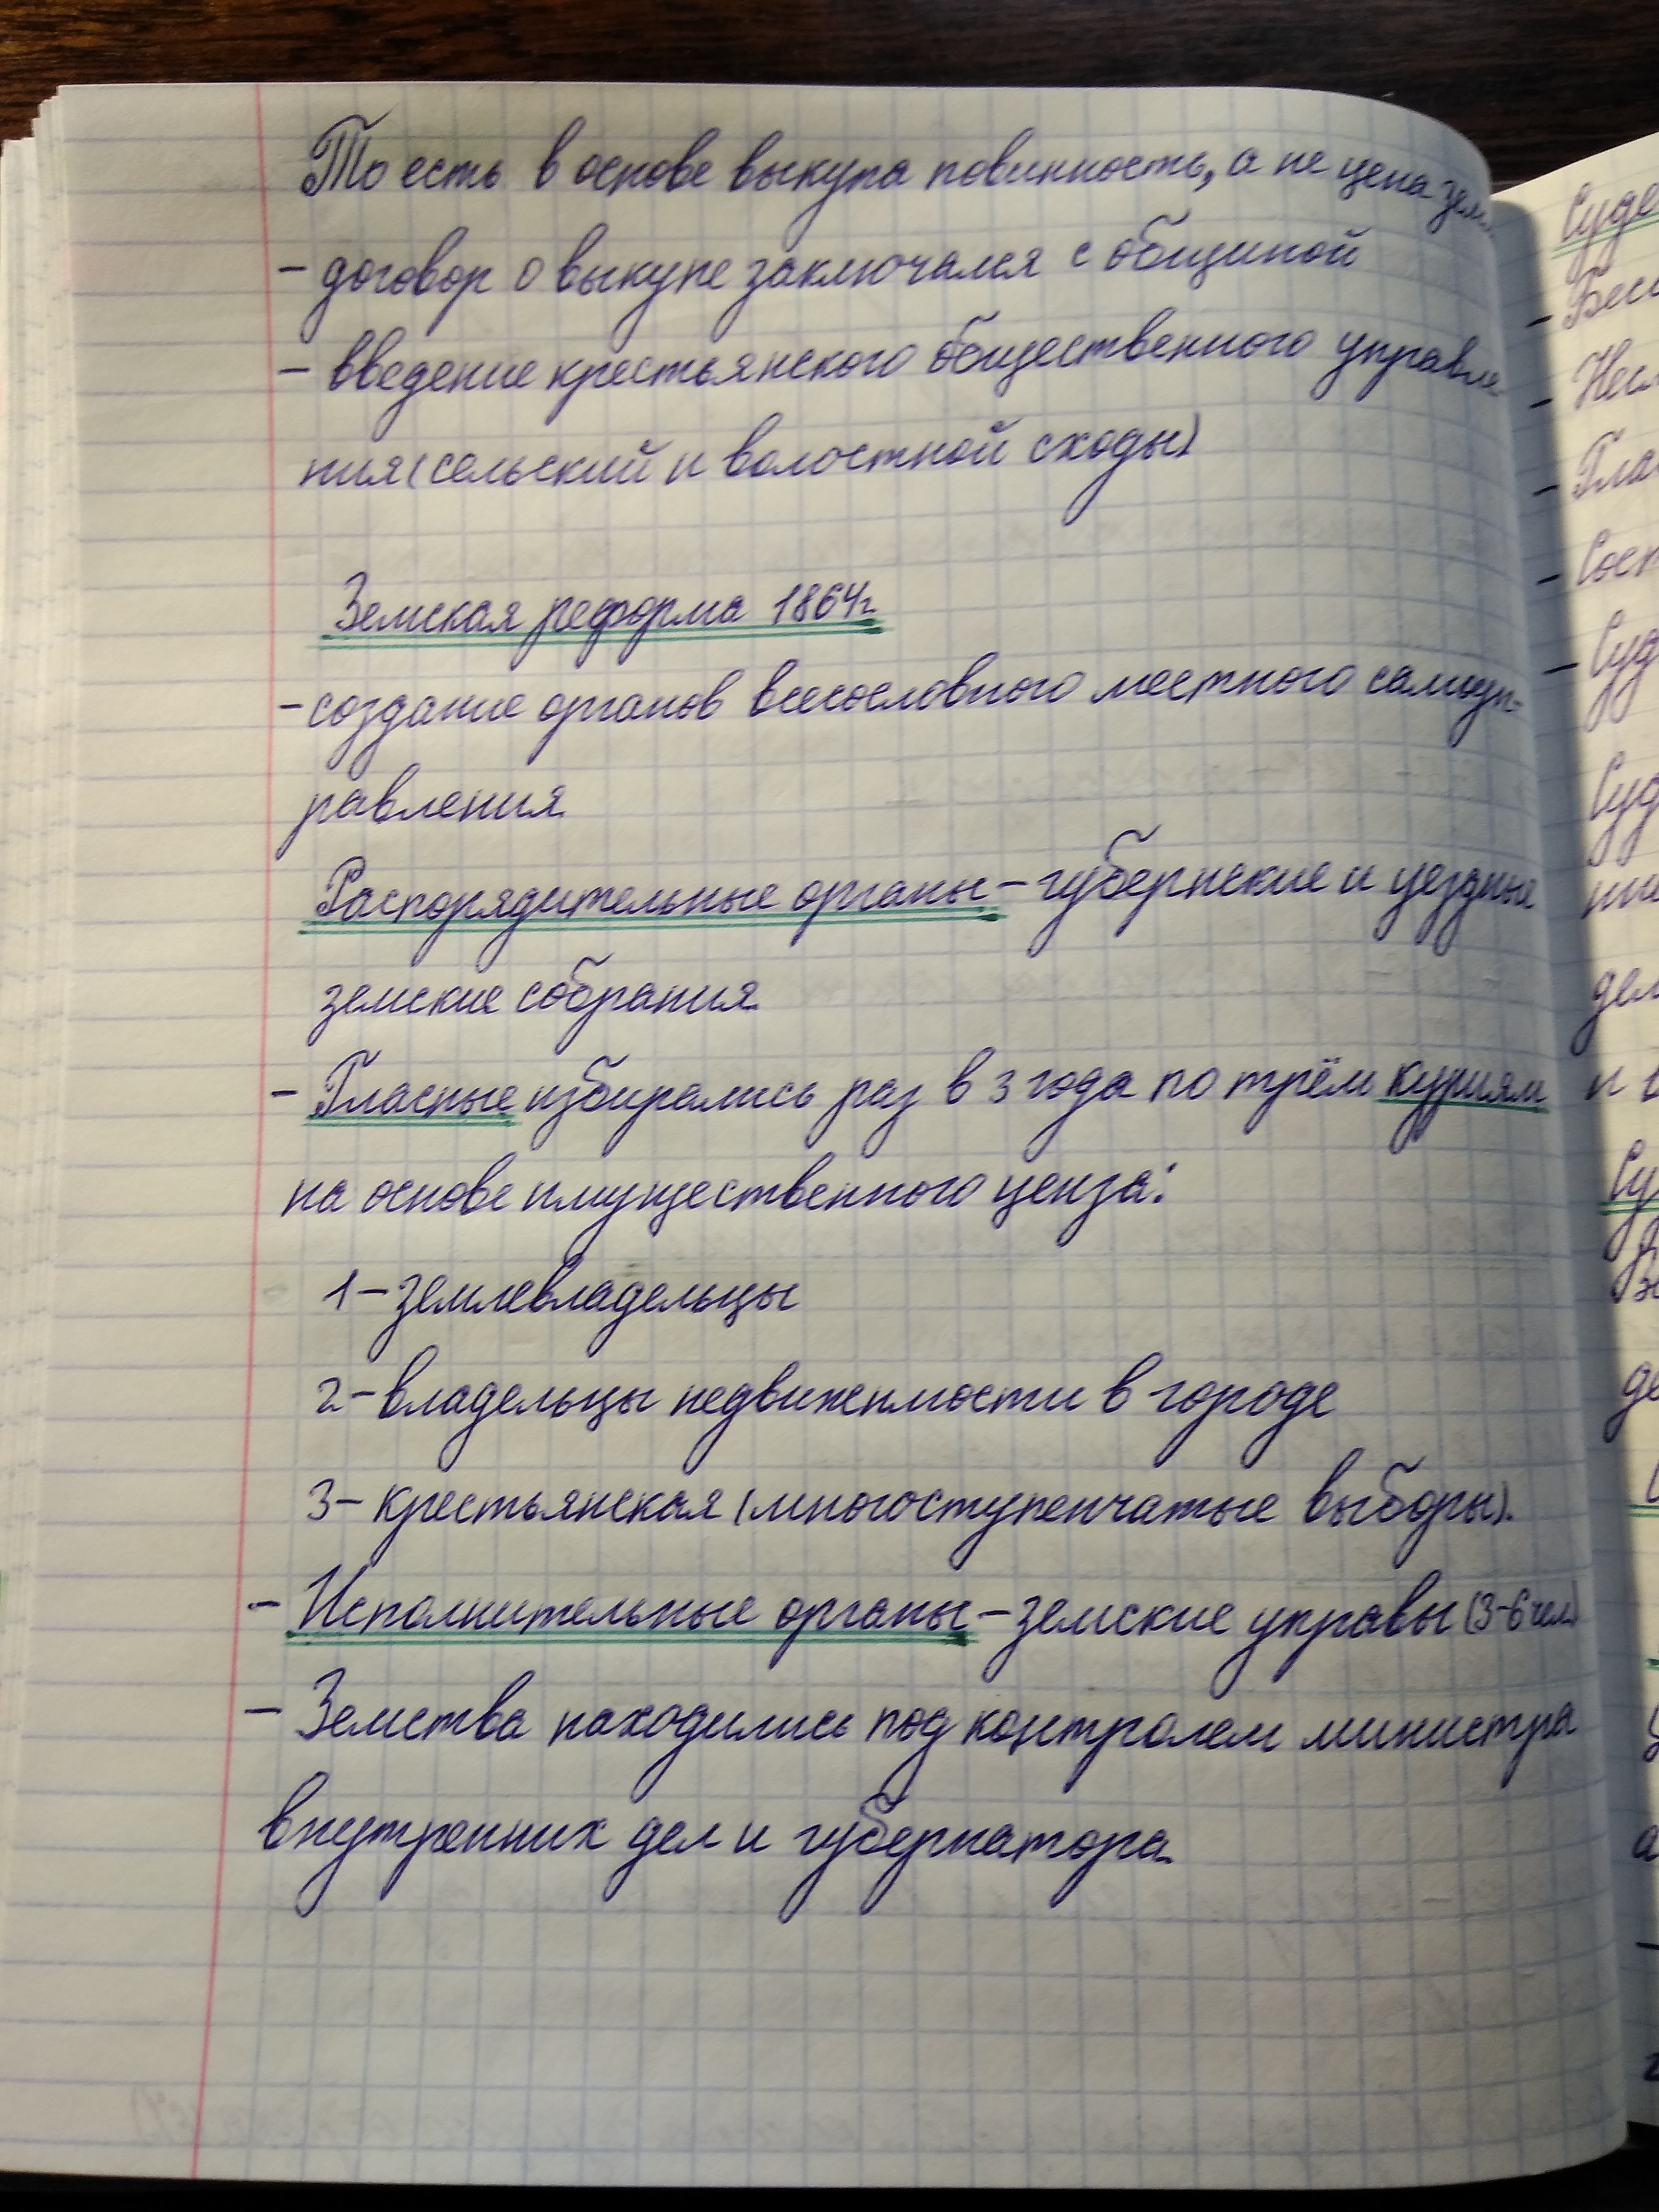 То есть в основе выкупа повинность, а не цена зем
- договор о выкупе заключался с общиной
- введение крестьянского общественного управле
ния (сельский и волостной сходы)
Земская реформа 1864г
- создание органов всесословного местного самоуп-
равления
Распорядительные органы - губернские и уездные
земские собрания.
- Гласные избирались раз в 3 года по трём куриям
на основе имущественного ценза:
1 - землевладельцы
2 - владельцы недвижимости в городе
3 - крестьянская (многоступенчатые выборы).
- Исполнительные органы - земские управы (3-6 чел)
- Земства находились под контролем министра
внутренних дел и губернатора.